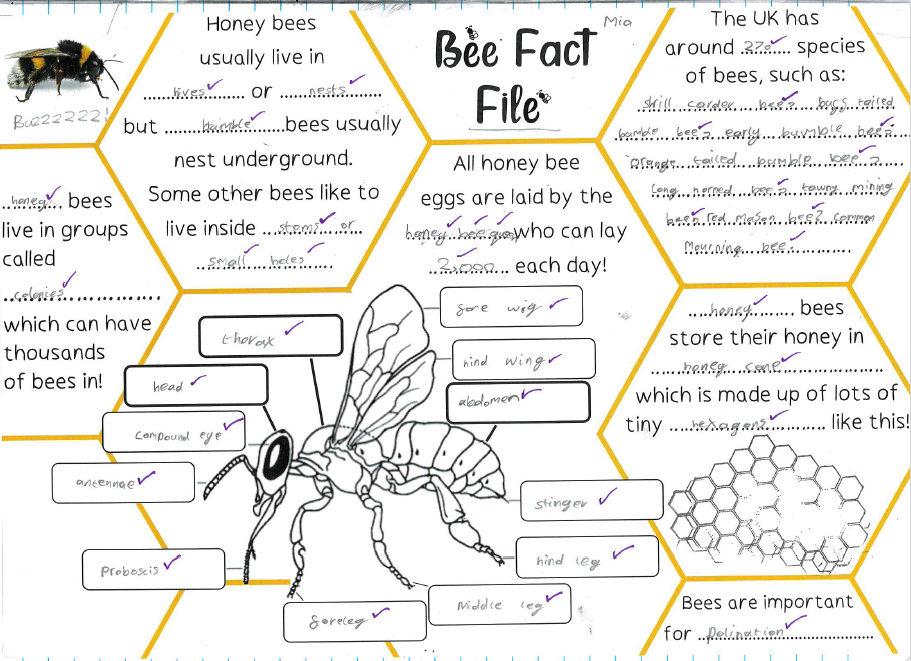 Mia
Bee Fact
File
Buzzzzzz!
Honey bees
usually live in
hives or nests
but bumble bees usually
nest underground.
Some other bees like to
live inside stems or
small holes
The UK has
around 270 species
of bees, such as:
shrill carder bee, buff tailed
bumble bee, early bumble bee,
orange tailed bumble bee,
long horned bee, tawny mining
bee, red mason bee, common
Mourning bee.
honey bees
live in groups
called
colonies
which can have
thousands
of bees in!
All honey bee
eggs are laid by the
honey bee queen who can lay
2,000 each day!
honey bees
store their honey in
honey cone
which is made up of lots of
tiny hexagons like this!
thorax
head
compound eye
antennae
Proboscis
fore wig
hind wing
abdomen
stinger
hind leg
Middle leg
foreleg
Bees are important
for Polination